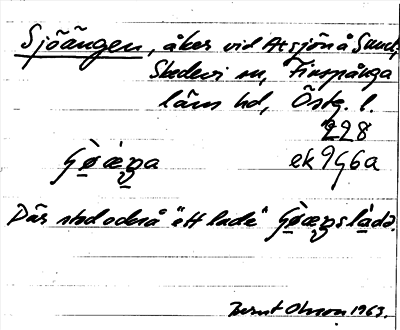 Sjöängen, åker vid Atsjön å Sund,
Skedevi sn, Finspånga
läns hd, Östg. l.
228
Gø̀æŋa ek 996a
Där stod också "ett lada" Gø̀æŋslàdǝ.
Bernt Olsson 1963.